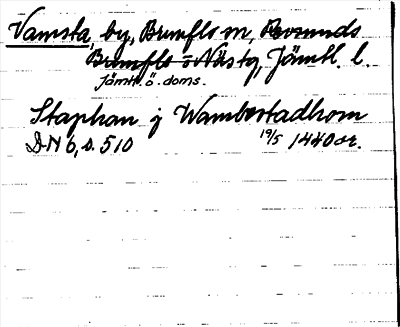 Vamsta, by, Brunflo sn, Revsunds
Brunflo o Näs tg, Jämtl. l.
Jämtl. ö. doms.
Staphan j Wamberstadhom
DN 6, s. 510 19/5 1440 or.